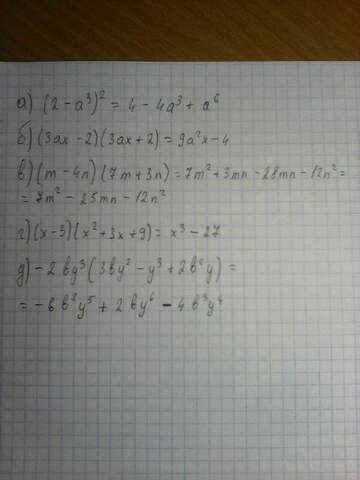 а) (2 - a³)² = 4 - 4a³ + a⁶
б) (3ax - 2)(3ax + 2) = 9a²x - 4
в) (m - 4n)(7m + 3n) = 7m² + 3mn - 28mn - 12n² =
= 7m² - 25mn - 12n²
г) (x - 3)(x² + 3x + 9) = x³ - 27
д) - 2by³(3by² - y³ + 2b²y) =
= - 6b²y⁵ + 2by⁶ - 4b³y⁴